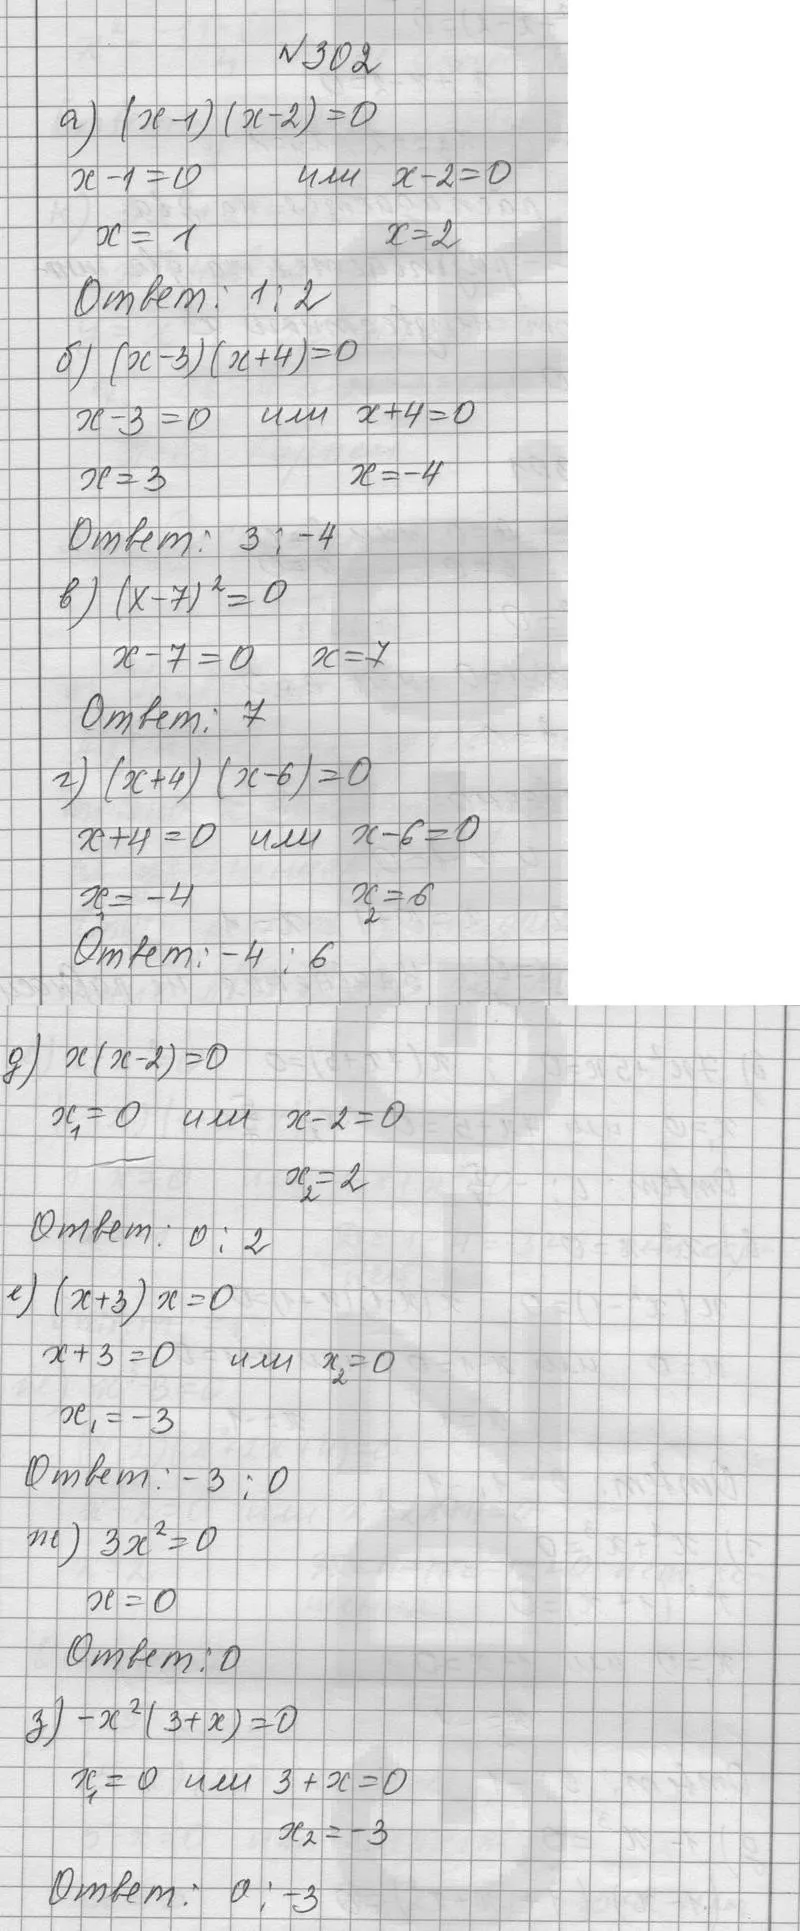 №302
а) (x-1)(x-2)=0
x-1=0 или x-2=0
x=1 x=2
Ответ: 1; 2
б) (x-3)(x+4)=0
x-3=0 или x+4=0
x=3 x=-4
Ответ: 3; -4
в) (x-7)²=0
x-7=0 x=7
Ответ: 7
г) (x+4)(x-6)=0
x+4=0 или x-6=0
x₁=-4 x₂=6
Ответ: -4; 6
д) x(x-2)=0
x₁=0 или x-2=0
x₂=2
Ответ: 0; 2
е) (x+3)x=0
x+3=0 или x₂=0
x₁=-3
Ответ: -3; 0
ж) 3x²=0
x=0
Ответ: 0
з) -x²(3+x)=0
x₁=0 или 3+x=0
x₂=-3
Ответ: 0; -3